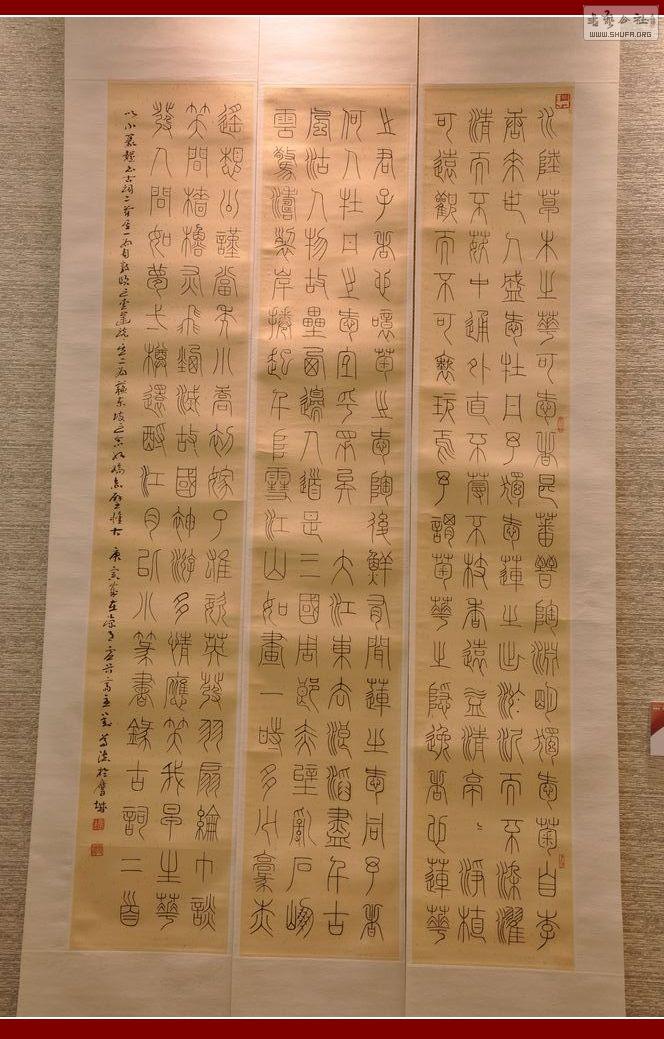 書藝公社
WWW.SHUFA.ORG
水陸草木之華可愛者甚蕃晉陶淵明獨愛菊自李
唐來世人盛愛牡丹予獨愛蓮之出淤泥而不染濯
清而不妖中通外直不蔓不枝香遠益清亭〻淨植
可遠觀而不可褻玩焉予謂菊華之隱逸者也蓮華
之君子者也噫菊之愛陶後鮮有聞蓮之愛同予者
何人牡丹之愛宜乎眾矣 大江東去浪淘盡千古
風流人物故壘西邊人道是三國周郎赤壁亂石崩
雲驚濤裂岸捲起千堆雪江山如畫一時多少豪杰
遙想公謹當年小喬初嫁了雄姿英發羽扇綸巾談
笑間檣櫓灰飛煙滅故國神游多情應笑我早生華
發人間如夢一樽還酹江月以小篆書錄古詞二首
以小篆體書古詞二首 敦頤之愛蓮說 二為蘇東坡之念奴嬌赤壁懷古 庚寅